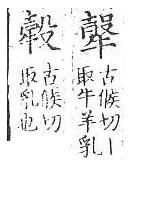 古候切丨
取牛羊乳
古候切
取乳也